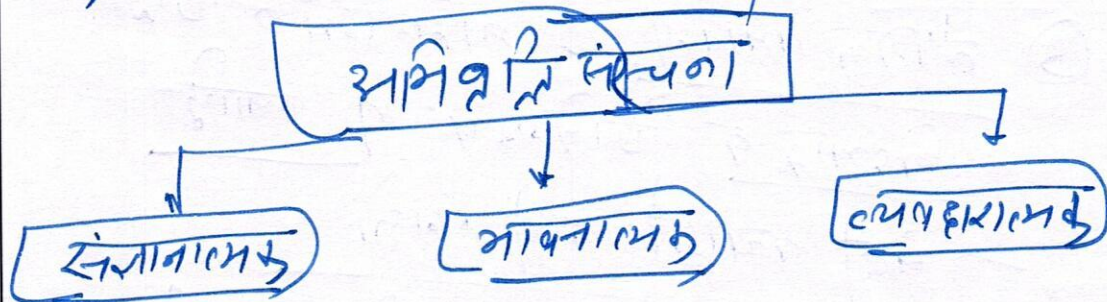 अभिवृत्ति संरचना
संज्ञानात्मक
भावनात्मक
व्यवहारात्मक